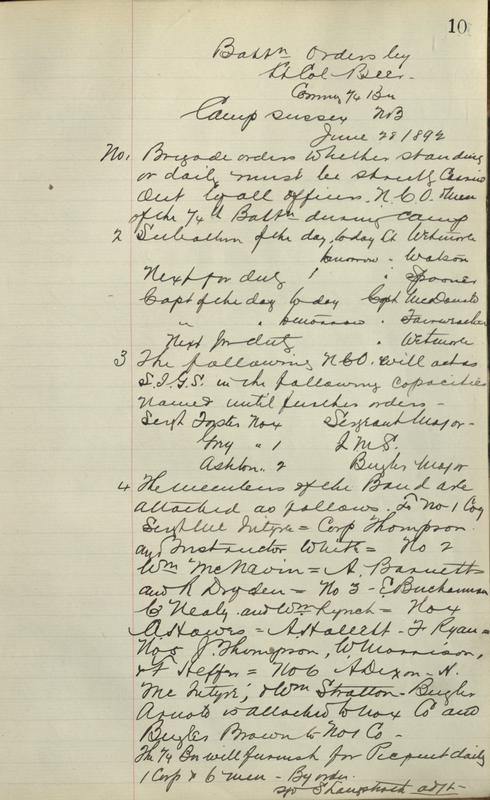 10
Battn Orders by
Lt Col Beer
Commg 74 Bn
Camp Sussex NB
June 28 1892
No 1 Brigade orders whether standing
or daily must be strictly Carried
Out by all officers, N.C.O. & men
of the 74th Battn during Camp
2 Subaltern of the day, to day Lt Wetmore
tomorrow " Watson
Next for duty " Spooner
Capt of the day to day Capt McDonald
" " tomorrow " Fairweather
Next for duty " Wetmore
3 The following N.C.O. will act as
S.I.G.S. in the following capacities
named until further orders -
Sergt Foster No 4 Sergeant Major -
" 1 Q.M.S.
Ashton " 2 Bugler Major
4 The members of the Band are
attached as follows. To No 1 Coy
Sergt McIntyre = Corp Thompson
and Instructor White = No 2
Wm McNavin = A. Barnett
and R Dryden = No 3 - E. Buchannan
C Nealy and Wm Rynch = No 4
A Hawes = A Hallett - F Ryan =
No 5 J. Thompson, W Morrison,
& F Heffer = No 6 A Dixon - H.
McIntyre, & Wm Stratton - Bugler
Arnold is attached to No 4 Co and
Bugler Brown to No 1 Co -
The 74 Bn will furnish for Picquet daily
1 Corp & 6 men - By order.
adjt -